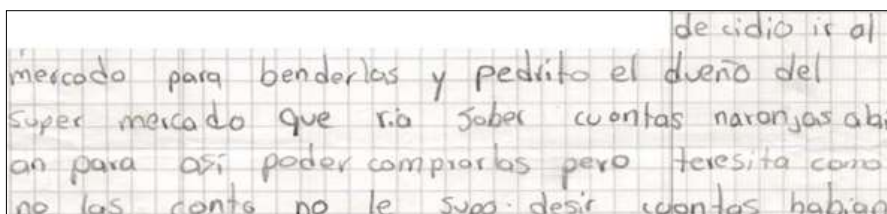 de cidio ir al
mercado para benderlas y pedrito el dueño del
super mercado que ria saber cuantas naranjas abi
an para así poder comprarlas pero teresita como
no las conto no le supo. desir cuantas habian